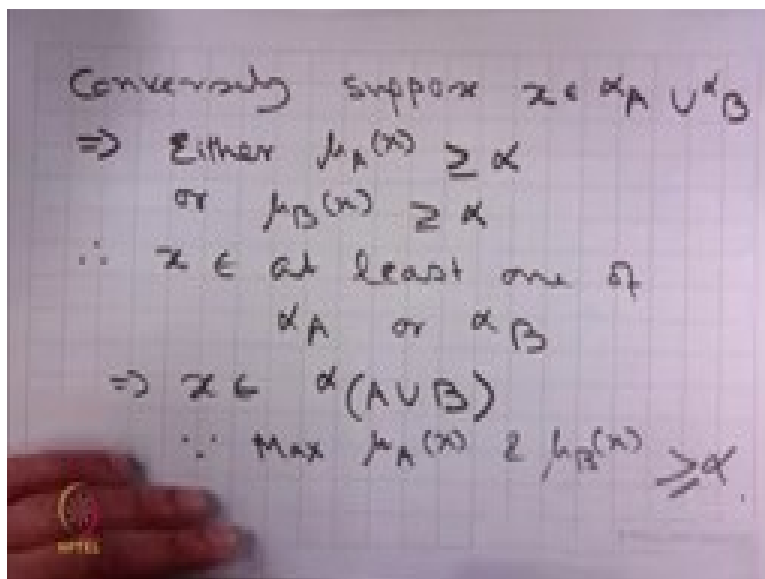 Conversely suppose x ∈ ᵅA ∪ ᵅB
⇒ Either μ_A(x) ≥ α
or μ_B(x) ≥ α
∴ x ∈ at least one of
ᵅA or ᵅB
⇒ x ∈ ᵅ(A∪B)
∵ Max μ_A(x) & μ_B(x) ≥ α.
NPTEL